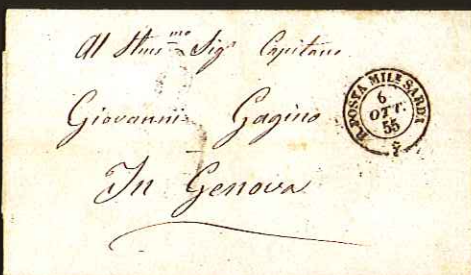 Al Ill.mo Sigr Capitano
Giovanni Gagino
In Genova
R. POSTA MIL.E SARDA
6
OTT.
55